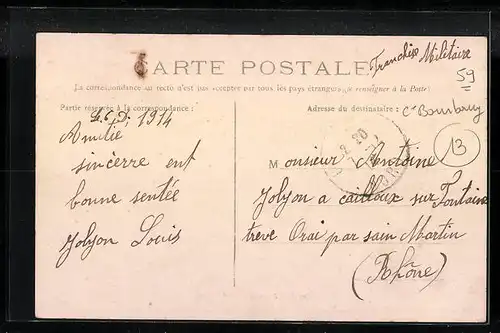 CARTE POSTALE
Franchise Militaire
59
La correspondance au recto n'est pas acceptée par tous les pays étrangers (se renseigner à la Poste)
Partie réservée à la correspondance :
Adresse du destinataire :
1914
13
Amitie
sincerre ent
bonne sentée
Jolyon Louis
Monsieur Antoine
Jolyon a cailloux sur Fontaine
treve Orai par sain Martin
(Rhône)